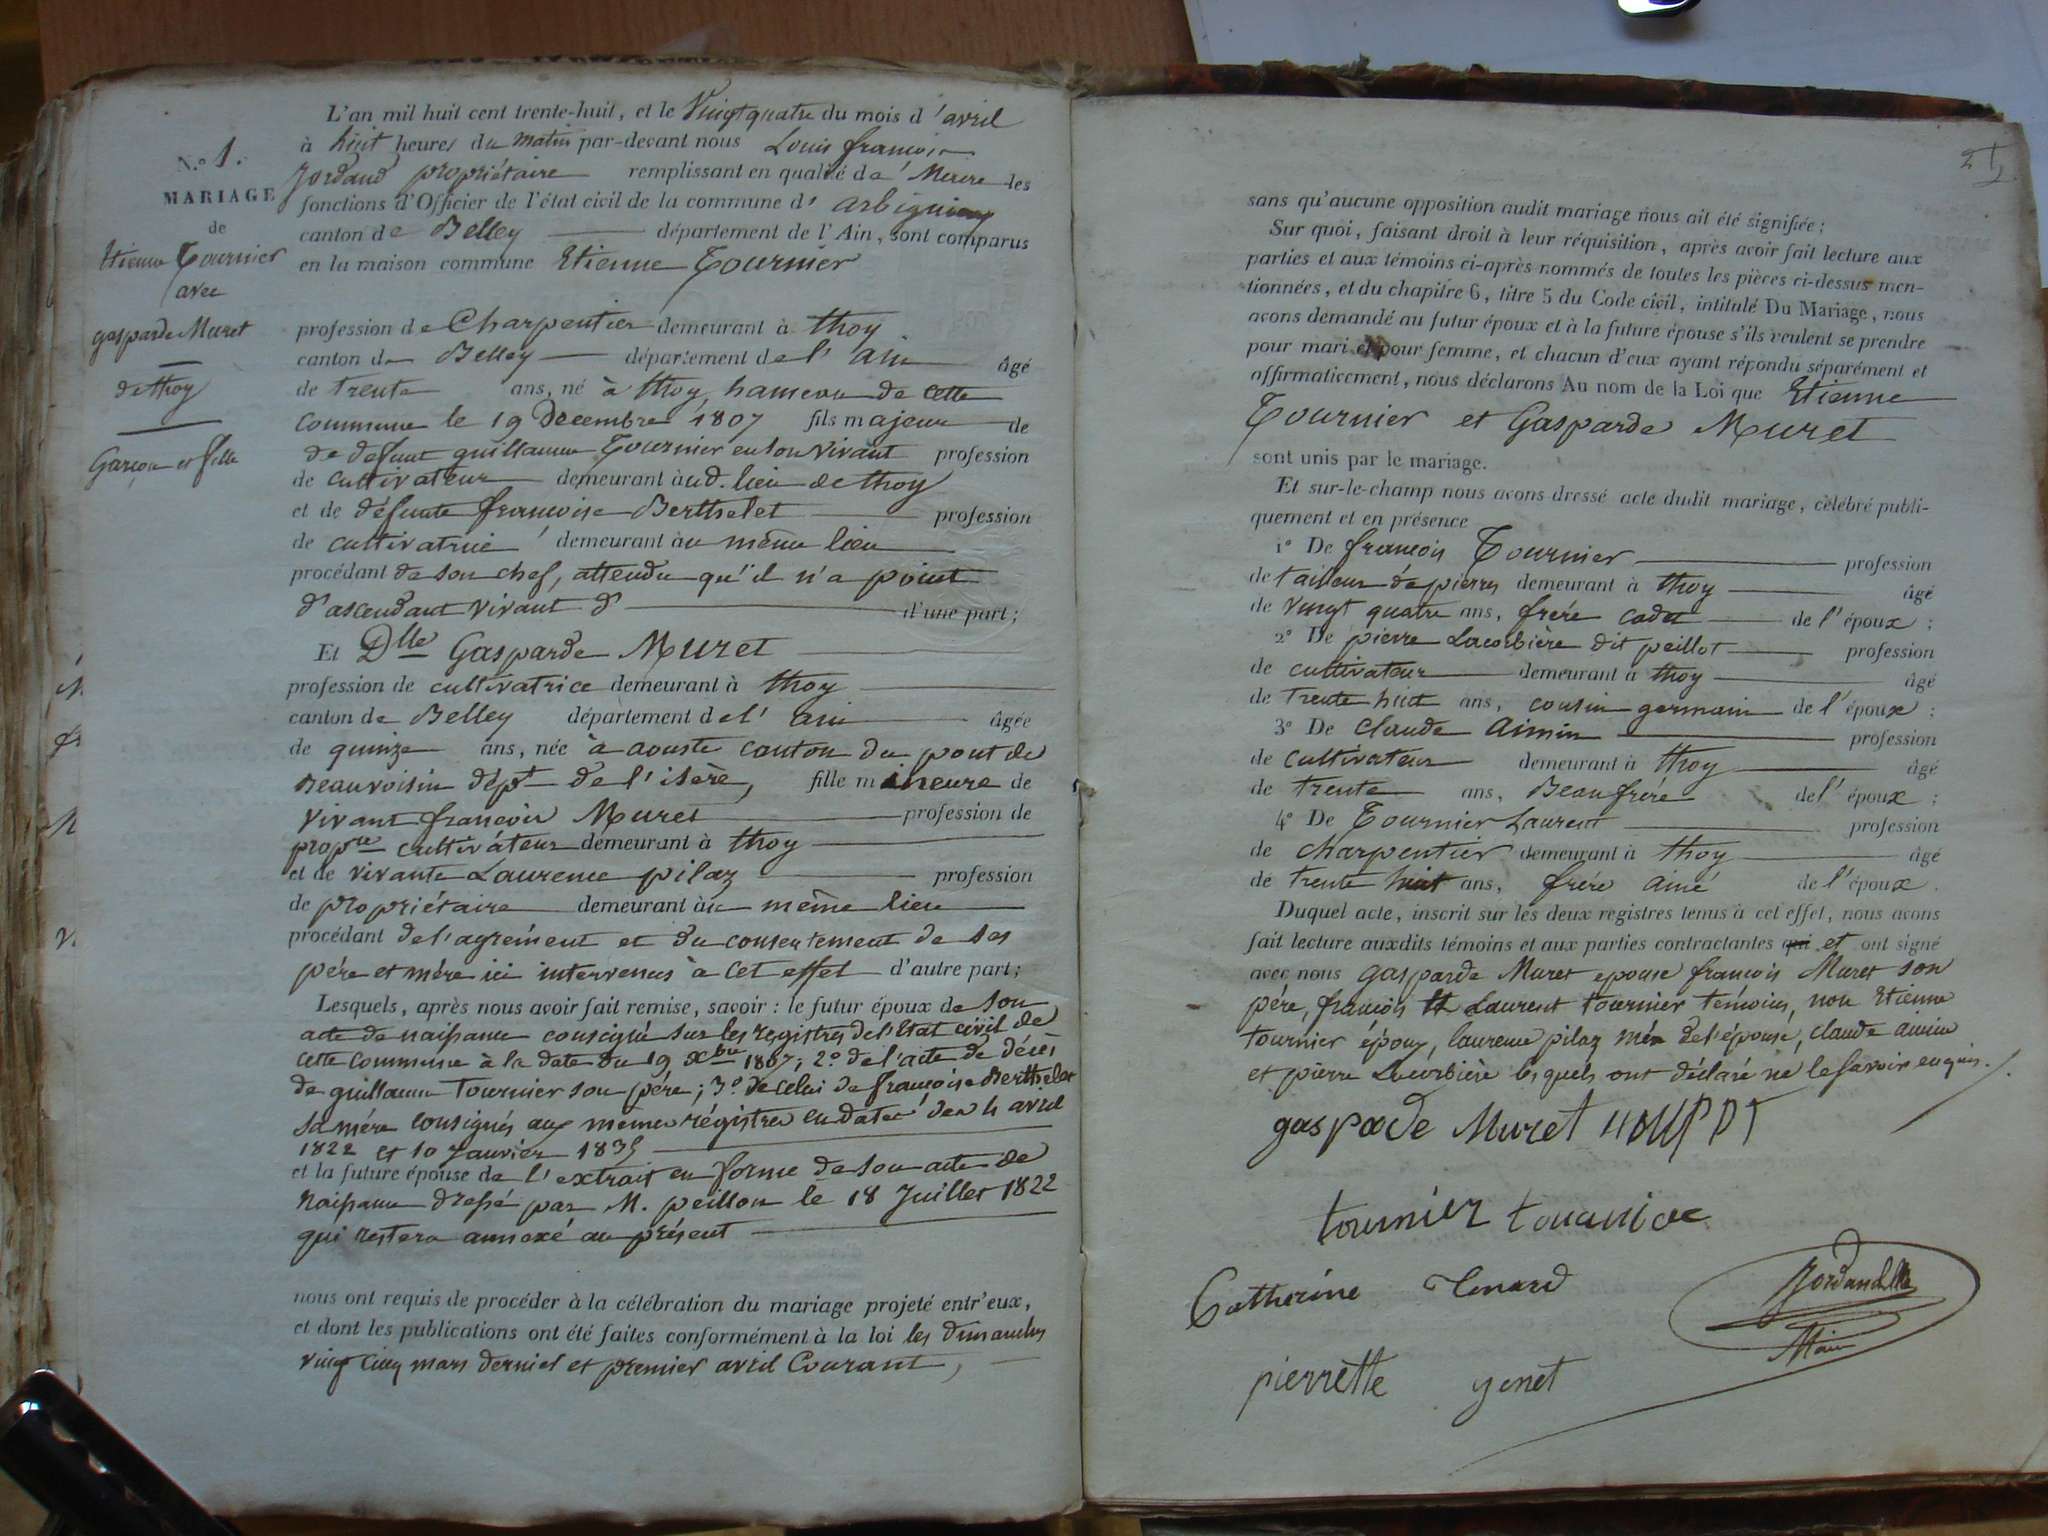 N.º 1.
MARIAGE
de
Etienne Tournier
avec
gasparde Muret
de thoy
Garçon et fille
L'an mil huit cent trente-huit, et le Vingt quatre du mois d'avril
à huit heures du matin par-devant nous Louis françois
Jordand propriétaire remplissant en qualité de Maire les
fonctions d'Officier de l'état civil de la commune d'arbignieu
canton de Belley département de l'Ain, sont comparus
en la maison commune Etienne Tournier
profession de Charpentier demeurant à thoy
canton de Belley département de l'ain âgé
de trente ans, né à thoy, hameau de cette
commune le 19 Decembre 1807 fils majeur de
de defunt guillaume Tournier en son vivant profession
de cultivateur demeurant aud. lieu de thoy
et de défunte françoise Berthelet profession
de cultivatrice demeurant au même lieu
procédant de son chef, attendu qu'il n'a point
d'ascendant vivant d' d'une part;
Et Dlle Gasparde Muret
profession de cultivatrice demeurant à thoy
canton de Belley département de l'ain âgée
de quinze ans, née à aouste canton du pont de
Beauvoisin dépt de l'isère, fille mineure de
vivant françois Muret profession de
proprre cultivateur demeurant à thoy
et de vivante Laurence pilaz profession
de propriétaire demeurant au même lieu
procédant de l'agrément et du consentement de ses
père et mère ici intervenus à cet effet d'autre part;
Lesquels, après nous avoir fait remise, savoir: le futur époux de son
acte de naissance consigné sur les registres de l'Etat civil de
cette commune à la date du 19 xbre 1807; 2º de l'acte de décès
de guillaume Tournier son père; 3º de celui de françoise Berthelet
sa mère consignés aux mêmes régistres en date des 4 avril
1822 et 10 Janvier 1835
et la future épouse de l'extrait en forme de son acte de
naissance dressé par M. peillon le 18 Juillet 1822
qui restera annexé au présent
nous ont requis de procéder à la célébration du mariage projeté entr'eux,
et dont les publications ont été faites conformément à la loi les dimanches
vingt cinq mars dernier et premier avril Courant,
sans qu'aucune opposition audit mariage nous ait été signifiée;
Sur quoi, faisant droit à leur réquisition, après avoir fait lecture aux
parties et aux témoins ci-après nommés de toutes les pièces ci-dessus men-
tionnées, et du chapitre 6, titre 5 du Code civil, intitulé Du Mariage, nous
avons demandé au futur époux et à la future épouse s'ils veulent se prendre
pour mari et pour femme, et chacun d'eux ayant répondu séparément et
affirmativement, nous déclarons Au nom de la Loi que Etienne
Tournier et Gasparde Muret
sont unis par le mariage.
Et sur-le-champ nous avons dressé acte dudit mariage, célébré publi-
quement et en présence
1º De françois Tournier profession
de tailleur de pierres demeurant à thoy âgé
de vingt quatre ans, frère cadet de l'époux;
2º De pierre Lacorbière dit peillot profession
de cultivateur demeurant à thoy âgé
de trente huit ans, cousin germain de l'époux;
3º De claude aimin profession
de cultivateur demeurant à thoy âgé
de trente ans, Beau frère de l'époux;
4º De Tournier Laurent profession
de charpentier demeurant à thoy âgé
de trente huit ans, frère ainé de l'époux.
Duquel acte, inscrit sur les deux registres tenus à cet effet, nous avons
fait lecture auxdits témoins et aux parties contractantes qui et ont signé
avec nous gasparde Muret epouse françois Muret son
père, françois et Laurent tournier témoins, non Etienne
tournier époux, laurence pilaz mère de l'épouse, claude aimin
et pierre Lacorbière lesquels ont déclaré ne le savoir enquis.
gasparde Muret
tournier
Catherine
pierrette
Jordand
Maire